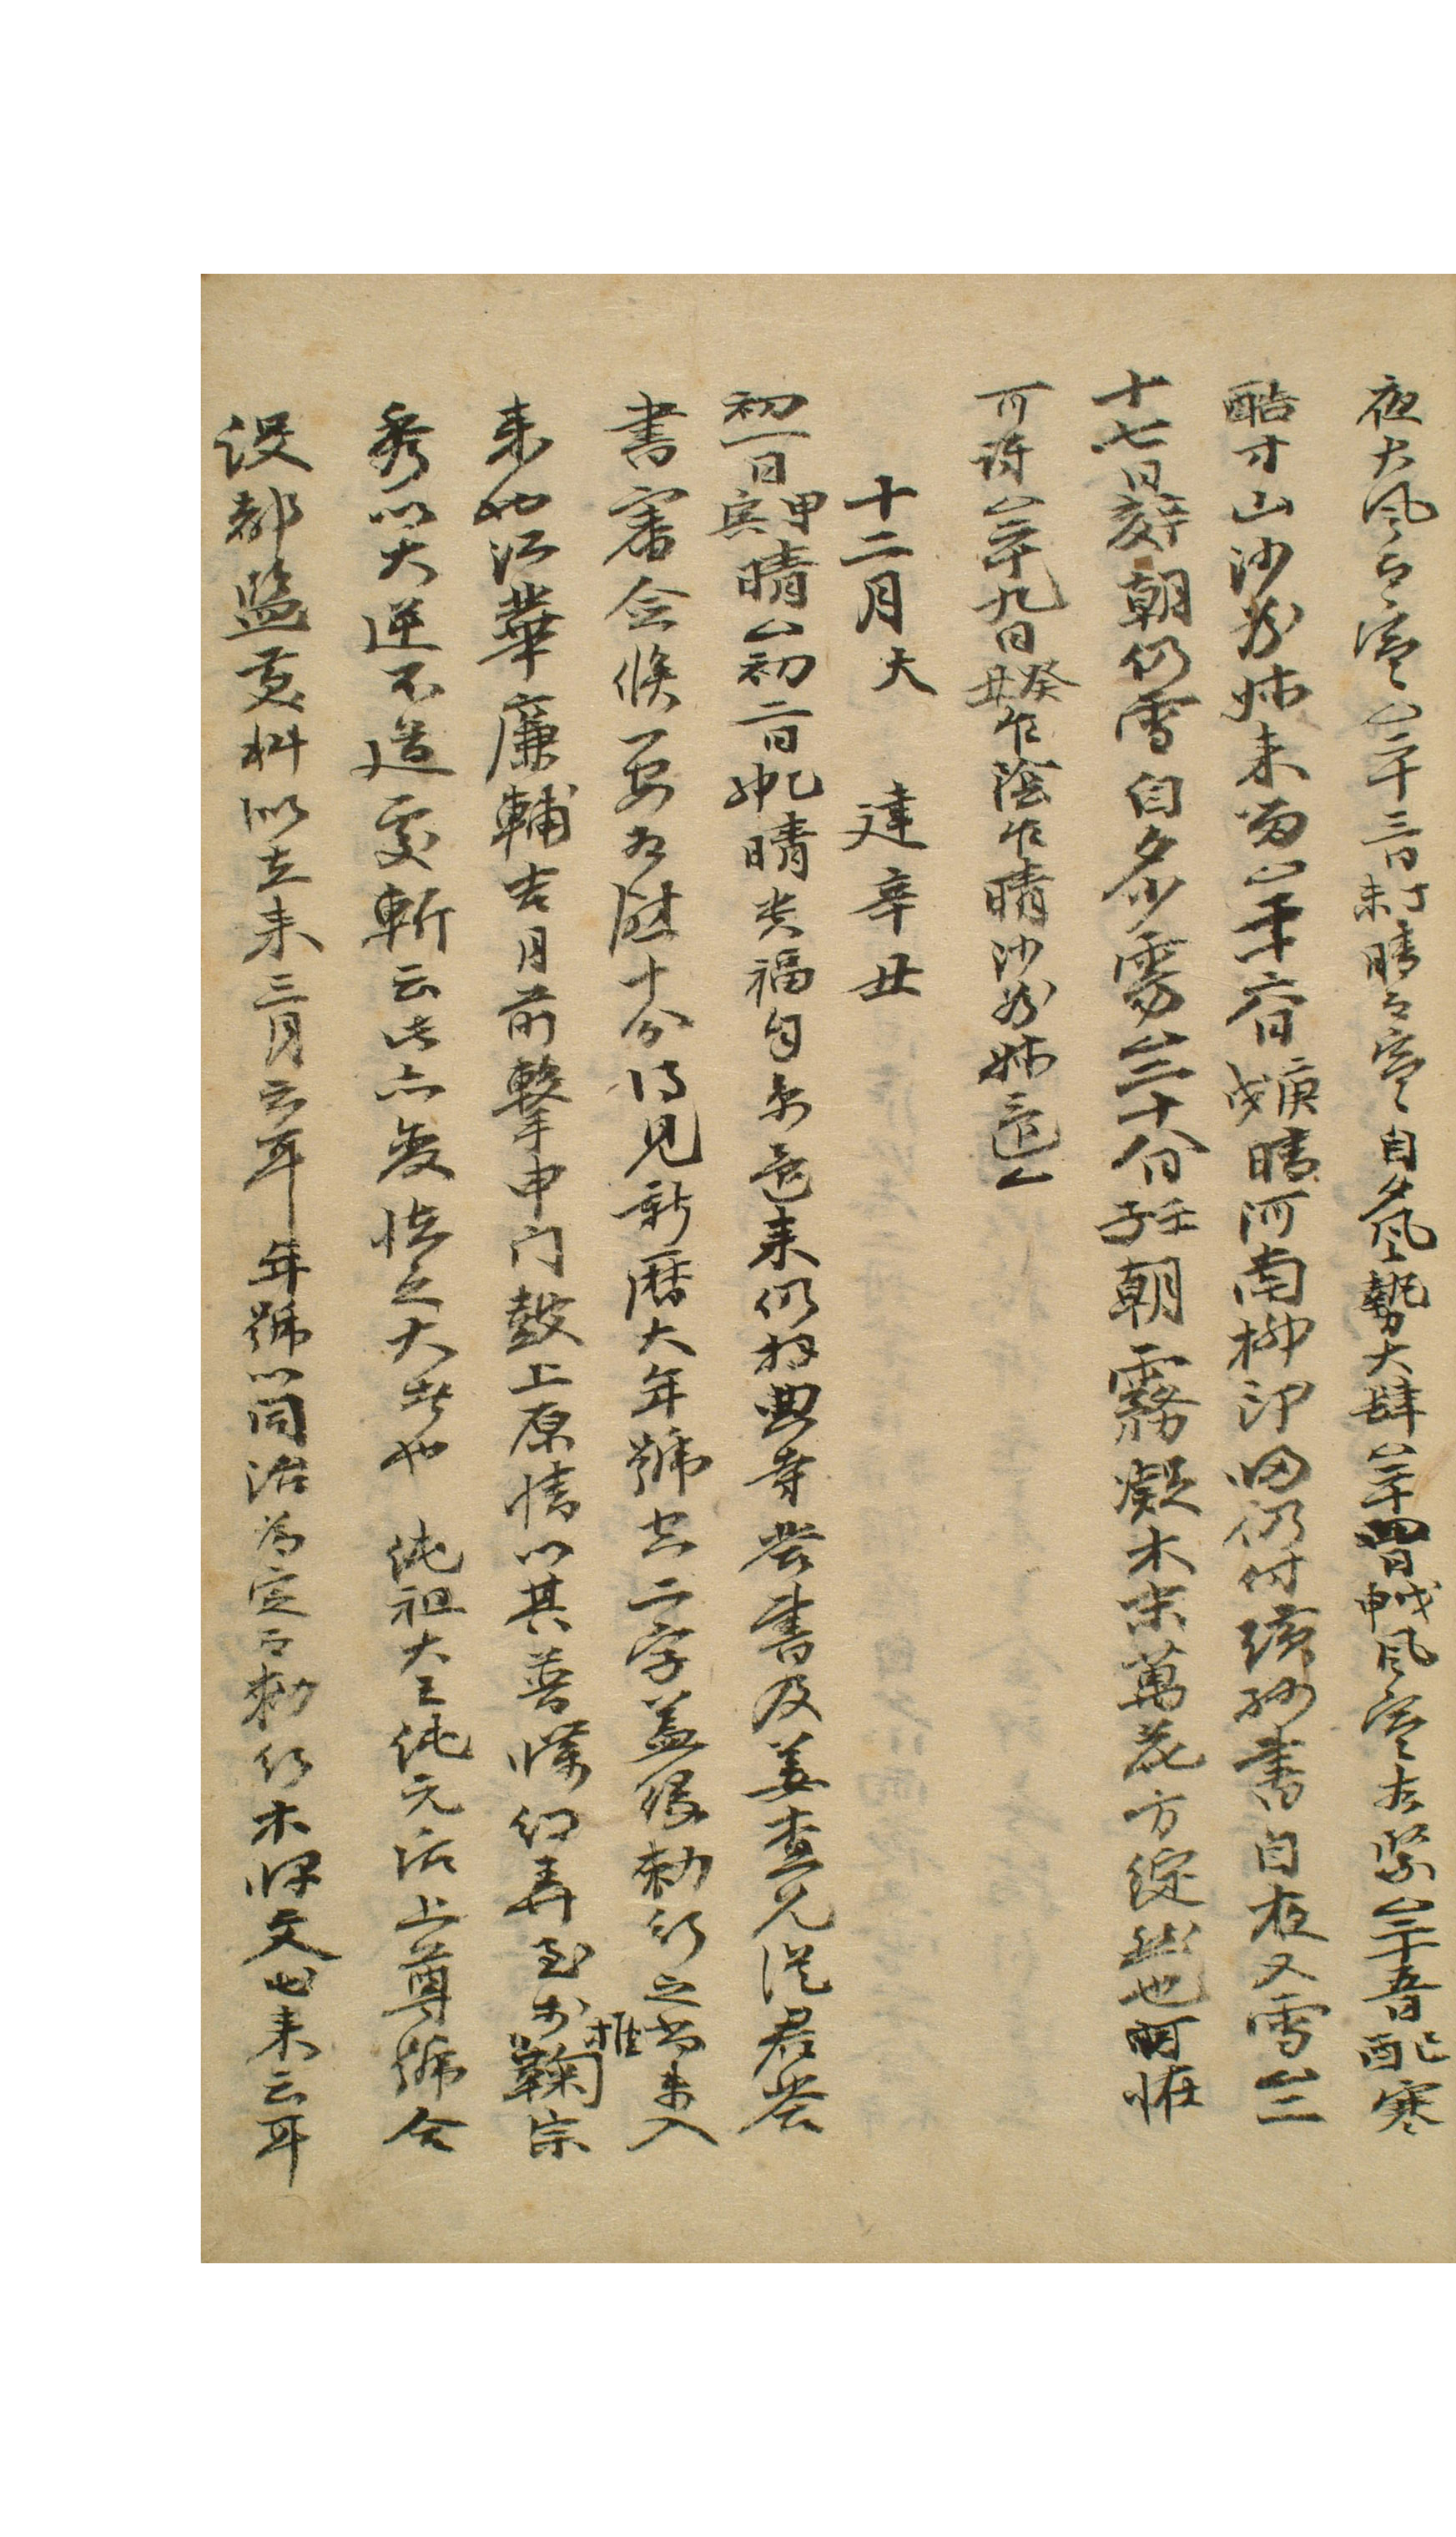 夜大風而寒△二十三日丁未晴而寒自夕風勢大肆△二十四日戊申風寒太緊△二十五日己酉寒
酷才山沙村姊來留△二十六日庚戌晴河南柳卬四仍付書自夜又雪△二
十七日辛亥朝仍雪自夕少霽△二十八日壬子朝霧凝木末萬花方綻然也可怪
可詩△二十九日癸丑乍陰乍晴沙村姊還△
十二月大 建辛丑
初一日甲寅晴△初二日乙卯晴貴福自京還來仍好典寺答書及姜查兄從君答
書審僉候一安爲慰十分得見新曆大年號書二字蓋緣勅行之尚未入
來也江華廉輔吉月前擊申門鼓上原情以其普幻弄至於推鞠宗
秀以大逆不道處斬云此亦變怪之大者也 純祖大王純元后上尊號合
設都監磨料以立來三月云耳 年號以同治爲定而勅行木牌文已來云耳